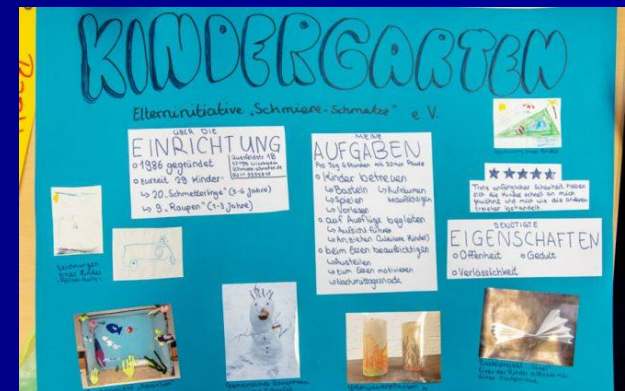 KINDERGARTEN
Elterninitiative „Schmiere-Schmatze“ e.V.
ÜBER DIE
EINRICHTUNG
o 1986 gegründet
o zurzeit 29 Kinder:
↳ 20 „Schmetterlinge“ (3-6 Jahre)
↳ 9 „Raupen“ (1-3 Jahre)
MEINE
AUFGABEN
Pro Tag 6 Stunden mit 30 min Pause
o Kinder betreuen
↳ Basteln ↳ Aufräumen
↳ Spielen beaufsichtigen
↳ Vorlesen
o auf Ausflüge begleiten
↳ Aufsicht führen
↳ Anziehen (kleinere Kinder)
o beim Essen beaufsichtigen
↳ Austeilen
↳ zum Essen motivieren
↳ Nachmittagssnack
Trotz anfänglicher Scheuheit haben
sich die Kinder schnell an mich
gewöhnt und mich wie die anderen
Erzieher behandelt.
BENÖTIGTE
EIGENSCHAFTEN
o Offenheit o Gedult
o Verlässlichkeit
Zeichnungen
eines Kindes